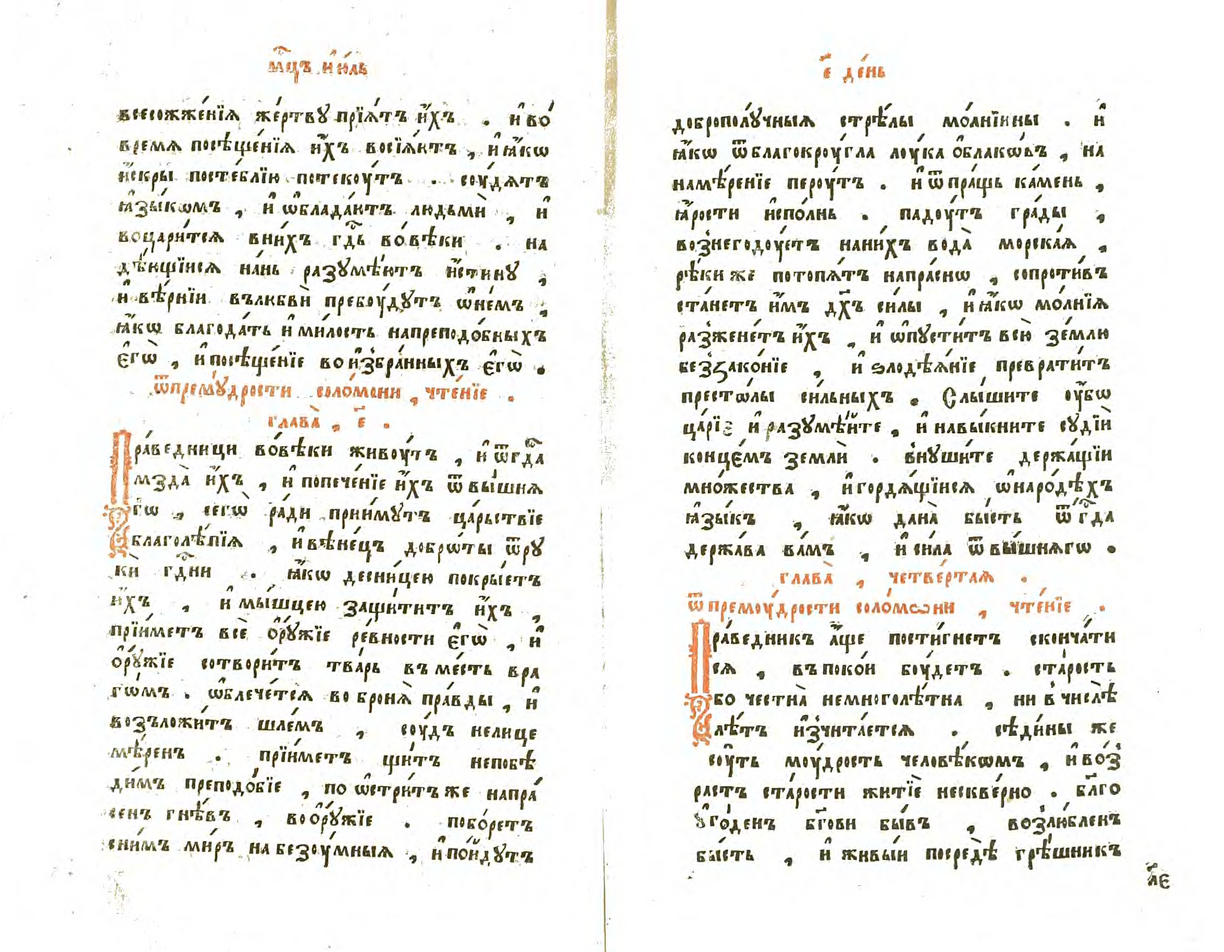 мⷭ҇цъ и҆ю́ль
всесожже́нїѧ же́ртвꙋ прїѧ́тъ и҆́хъ . и҆ во
вре́мѧ посѣще́нїѧ и҆́хъ восїѧ́ютъ , и҆ ꙗ҆́кѡ
и҆́скры постеблїю потекꙋ́тъ . сꙋ́дѧтъ
ꙗ҆зы́кѡмъ , и҆ ѡ҆блада́ютъ людьмѝ , и҆
воцари́тсѧ вни́хъ гдⷭ҇ь во́вѣки . на
дѣ́ющїисѧ на́нь разꙋмѣ́ютъ и҆́стинꙋ ,
и҆ вѣ́рнїи вълюбвѝ пребꙋ́дꙋтъ ѡ҆не́мъ ,
ꙗ҆́кѡ благода́ть и҆ ми́лость напреподо́бныхъ
є҆гѡ̀ , и҆ посѣще́нїе во и҆збра́нныхъ є҆гѡ̀ .
ѿпремꙋ́дрости соло́мѡни , чте́нїе .
глава̀ , є҃ .
Пра́ведници во́вѣки живꙋ́тъ , и҆ ѿгдⷭ҇а
мзда̀ и҆́хъ , и҆ попече́нїе и҆́хъ ѿ вы́шнѧ
гѡ , сегѡ̀ ра́ди прии́мꙋтъ ца́рьствїе
благолѣ́пїѧ , и҆ вѣне́цъ добрѡ́ты ѿ рꙋ
кѝ гдⷭ҇ни . ꙗ҆́кѡ десни́цею покры́етъ
и҆́хъ , и҆ мы́шцею защи́титъ и҆́хъ ,
прїи́метъ всѐ ѻ҆рꙋ́жїе ре́вности є҆гѡ̀ , и҆
ѻ҆рꙋ́жїе сотвори́тъ тва́рь въ ме́сть вра
гѡ́мъ . ѡ҆блече́тсѧ во бронѧ̀ пра́вды , и҆
возъложи́тъ шле́мъ , сꙋ́дъ нелице
мѣ́ренъ . прїи́метъ щи́тъ непобѣ
ди́мъ преподо́бїе , по ѡ҆стри́тъ же напра́
сенъ гнѣ́въ , во ѻ҆рꙋ́жїе . побо́ретъ
сни́мъ ми́ръ на безꙋ́мныѧ , и҆ по́йдꙋтъ
є҃ де́нь
доброполꙋ́чныѧ стрѣ́лы мо́лнїины . и҆
ꙗ҆́кѡ ѿ благокрꙋ́гла лꙋ́ка ѻ҆́блакѡвъ , на
намѣ́ренїе перꙋ́тъ . и҆ ѿ пра́щь ка́мень ,
ꙗ҆́рости и҆спо́лнь . падꙋ́тъ гра́ды ,
вознегодꙋ́етъ нани́хъ вода̀ морска́ѧ ,
рѣ́ки же потопѧ́тъ напра́снѡ , сопроти́въ
ста́нетъ и҆́мъ дх҃ъ си́лы , и҆ ꙗ҆́кѡ мо́лнїѧ
разжене́тъ и҆́хъ , и҆ ѡ҆пꙋсти́тъ всю̀ зе́млю
беззако́нїе , и҆ ѕлодѣѧ́нїе преврати́тъ
престо́лы си́льныхъ . Слы́шите ᲂу҆́бѡ
ца́рїе и҆ разꙋмѣ́йте , и҆ навы́кните сꙋдїѝ
конце́мъ землѝ . внꙋши́те держа́щїи
мно́жества , и҆ гордѧ́щїисѧ ѡ҆наро́дѣхъ
ꙗ҆зы́къ , ꙗ҆́кѡ дана̀ бы́сть ѿ гдⷭ҇а
держа́ва ва́мъ , и҆ си́ла ѿ вы́шнѧгѡ .
глава̀ , четве́ртаѧ .
ѿ премꙋ́дрости соло́мѡни , чте́нїе .
Пра́ведникъ а҆́ще пости́гнетъ сконча́ти
сѧ , въ поко́и бꙋ́детъ . ста́рость
бо честна̀ немноголѣ́тна , ни в числѣ̀
лѣ́тъ и҆зчита́етсѧ . сѣди́ны же
сꙋ́ть мꙋ́дрость человѣ́кѡмъ , и҆ во́з
растъ ста́рости житїѐ нескве́рно . бл҃го
ᲂу҆го́денъ бг҃ови бы́въ , возлю́бленъ
бы́сть , и҆ живы́и посредѣ̀ грѣ́шникъ
л҃є